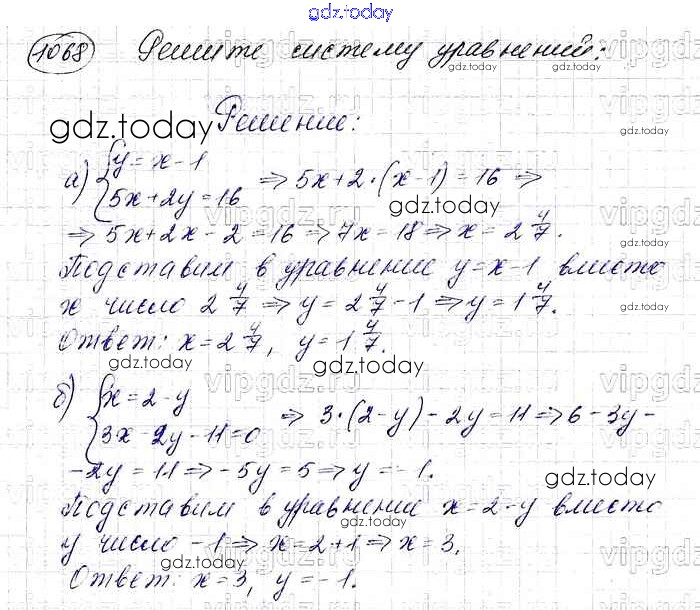 gdz.today
1068 Решите систему уравнений:
gdz.today
gdz.today
gdz.today Решение:
gdz.today
а) {y = x - 1
{5x + 2y = 16 ⇒ 5x + 2 · (x - 1) = 16 ⇒
gdz.today
gdz.today
⇒ 5x + 2x - 2 = 16 ⇒ 7x = 18 ⇒ x = 2 4/7.
Подставим в уравнение y = x - 1 вместо
x число 2 4/7 ⇒ y = 2 4/7 - 1 ⇒ y = 1 4/7.
gdz.today
Ответ: x = 2 4/7, y = 1 4/7.
gdz.today
gdz.today
vipgdz.ru
б) {x = 2 - y
{3x - 2y - 11 = 0 ⇒ 3 · (2 - y) - 2y = 11 ⇒ 6 - 3y -
- 2y = 11 ⇒ -5y = 5 ⇒ y = -1.
gdz.today
Подставим в уравнение x = 2 - y вместо
gdz.today
y число -1 ⇒ x = 2 + 1 ⇒ x = 3,
gdz.today
Ответ: x = 3, y = -1.
gdz.today